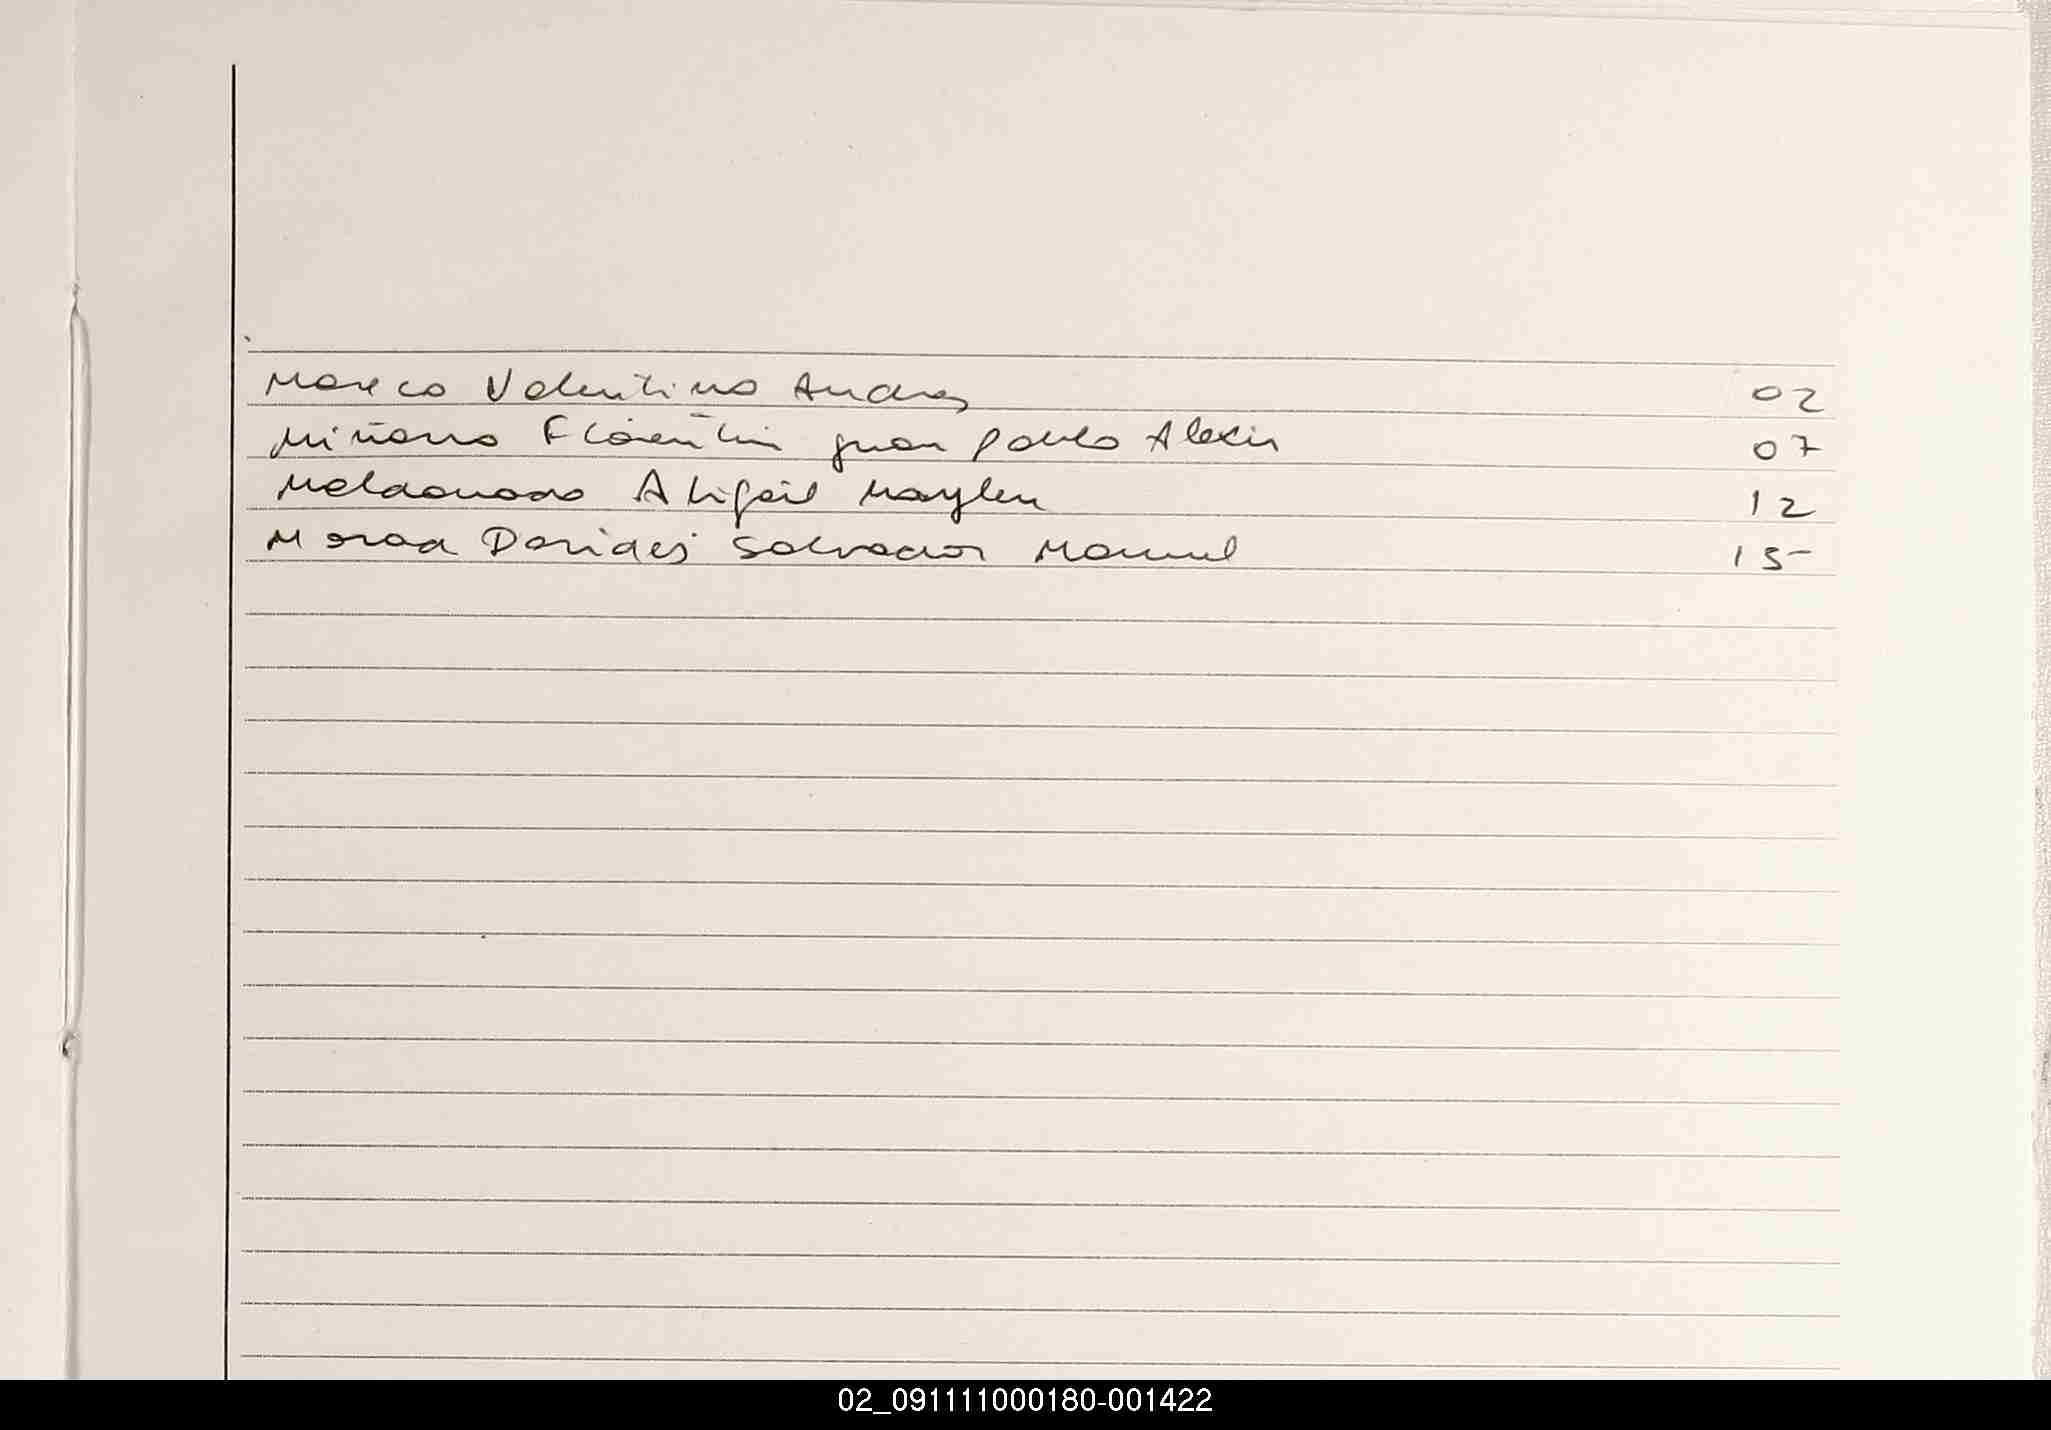 Mareco Valentino Andres 02
Miñarro Florentin Juan Pablo Alexis 07
Maldonado Abigail Maylen 12
Salvador Manuel 15
02_091111000180-001422